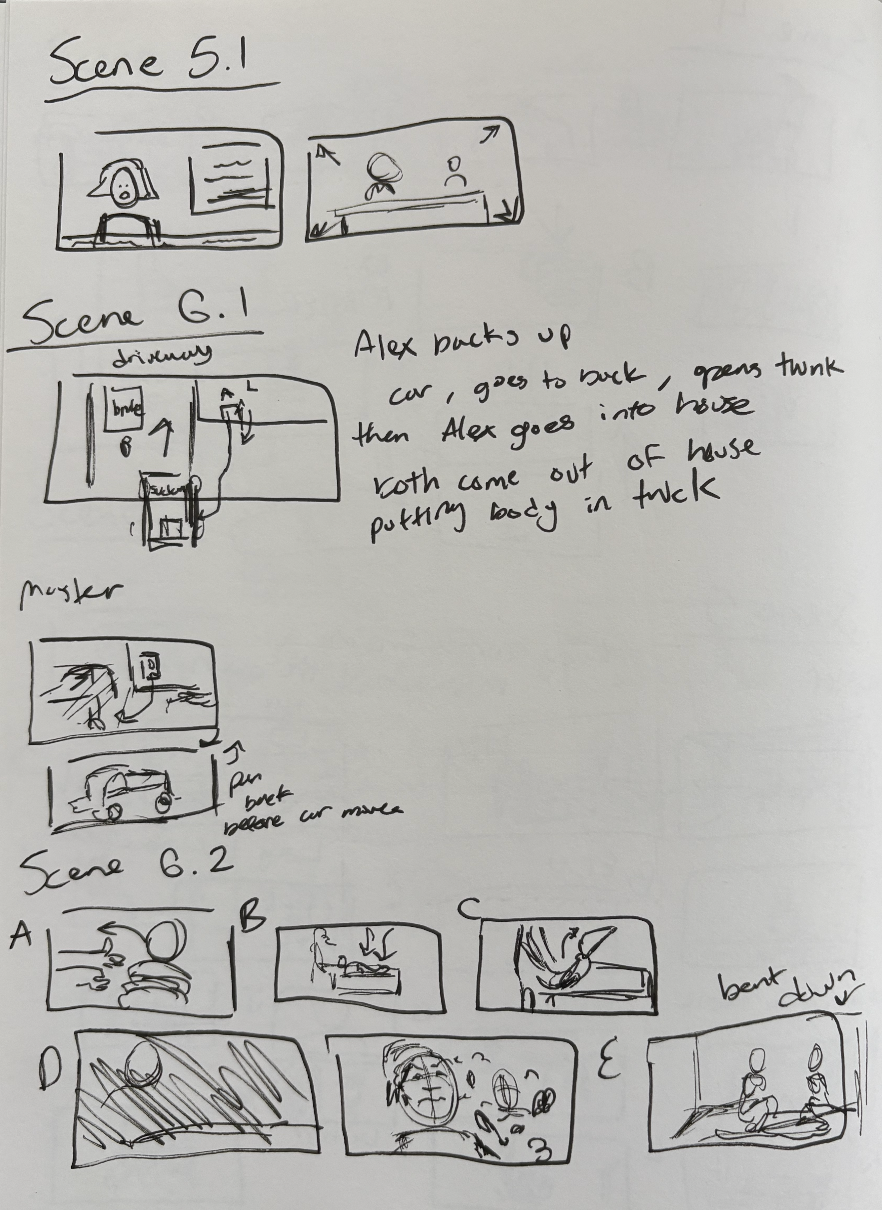 Scene 5.1
Scene 6.1
driveway
A L
B
Alex backs up
car, goes to back, opens trunk
then Alex goes into house
both come out of house
putting body in truck
Master
pan
back
before car moves
Scene 6.2
A
B
C
bent
down
D
3
E